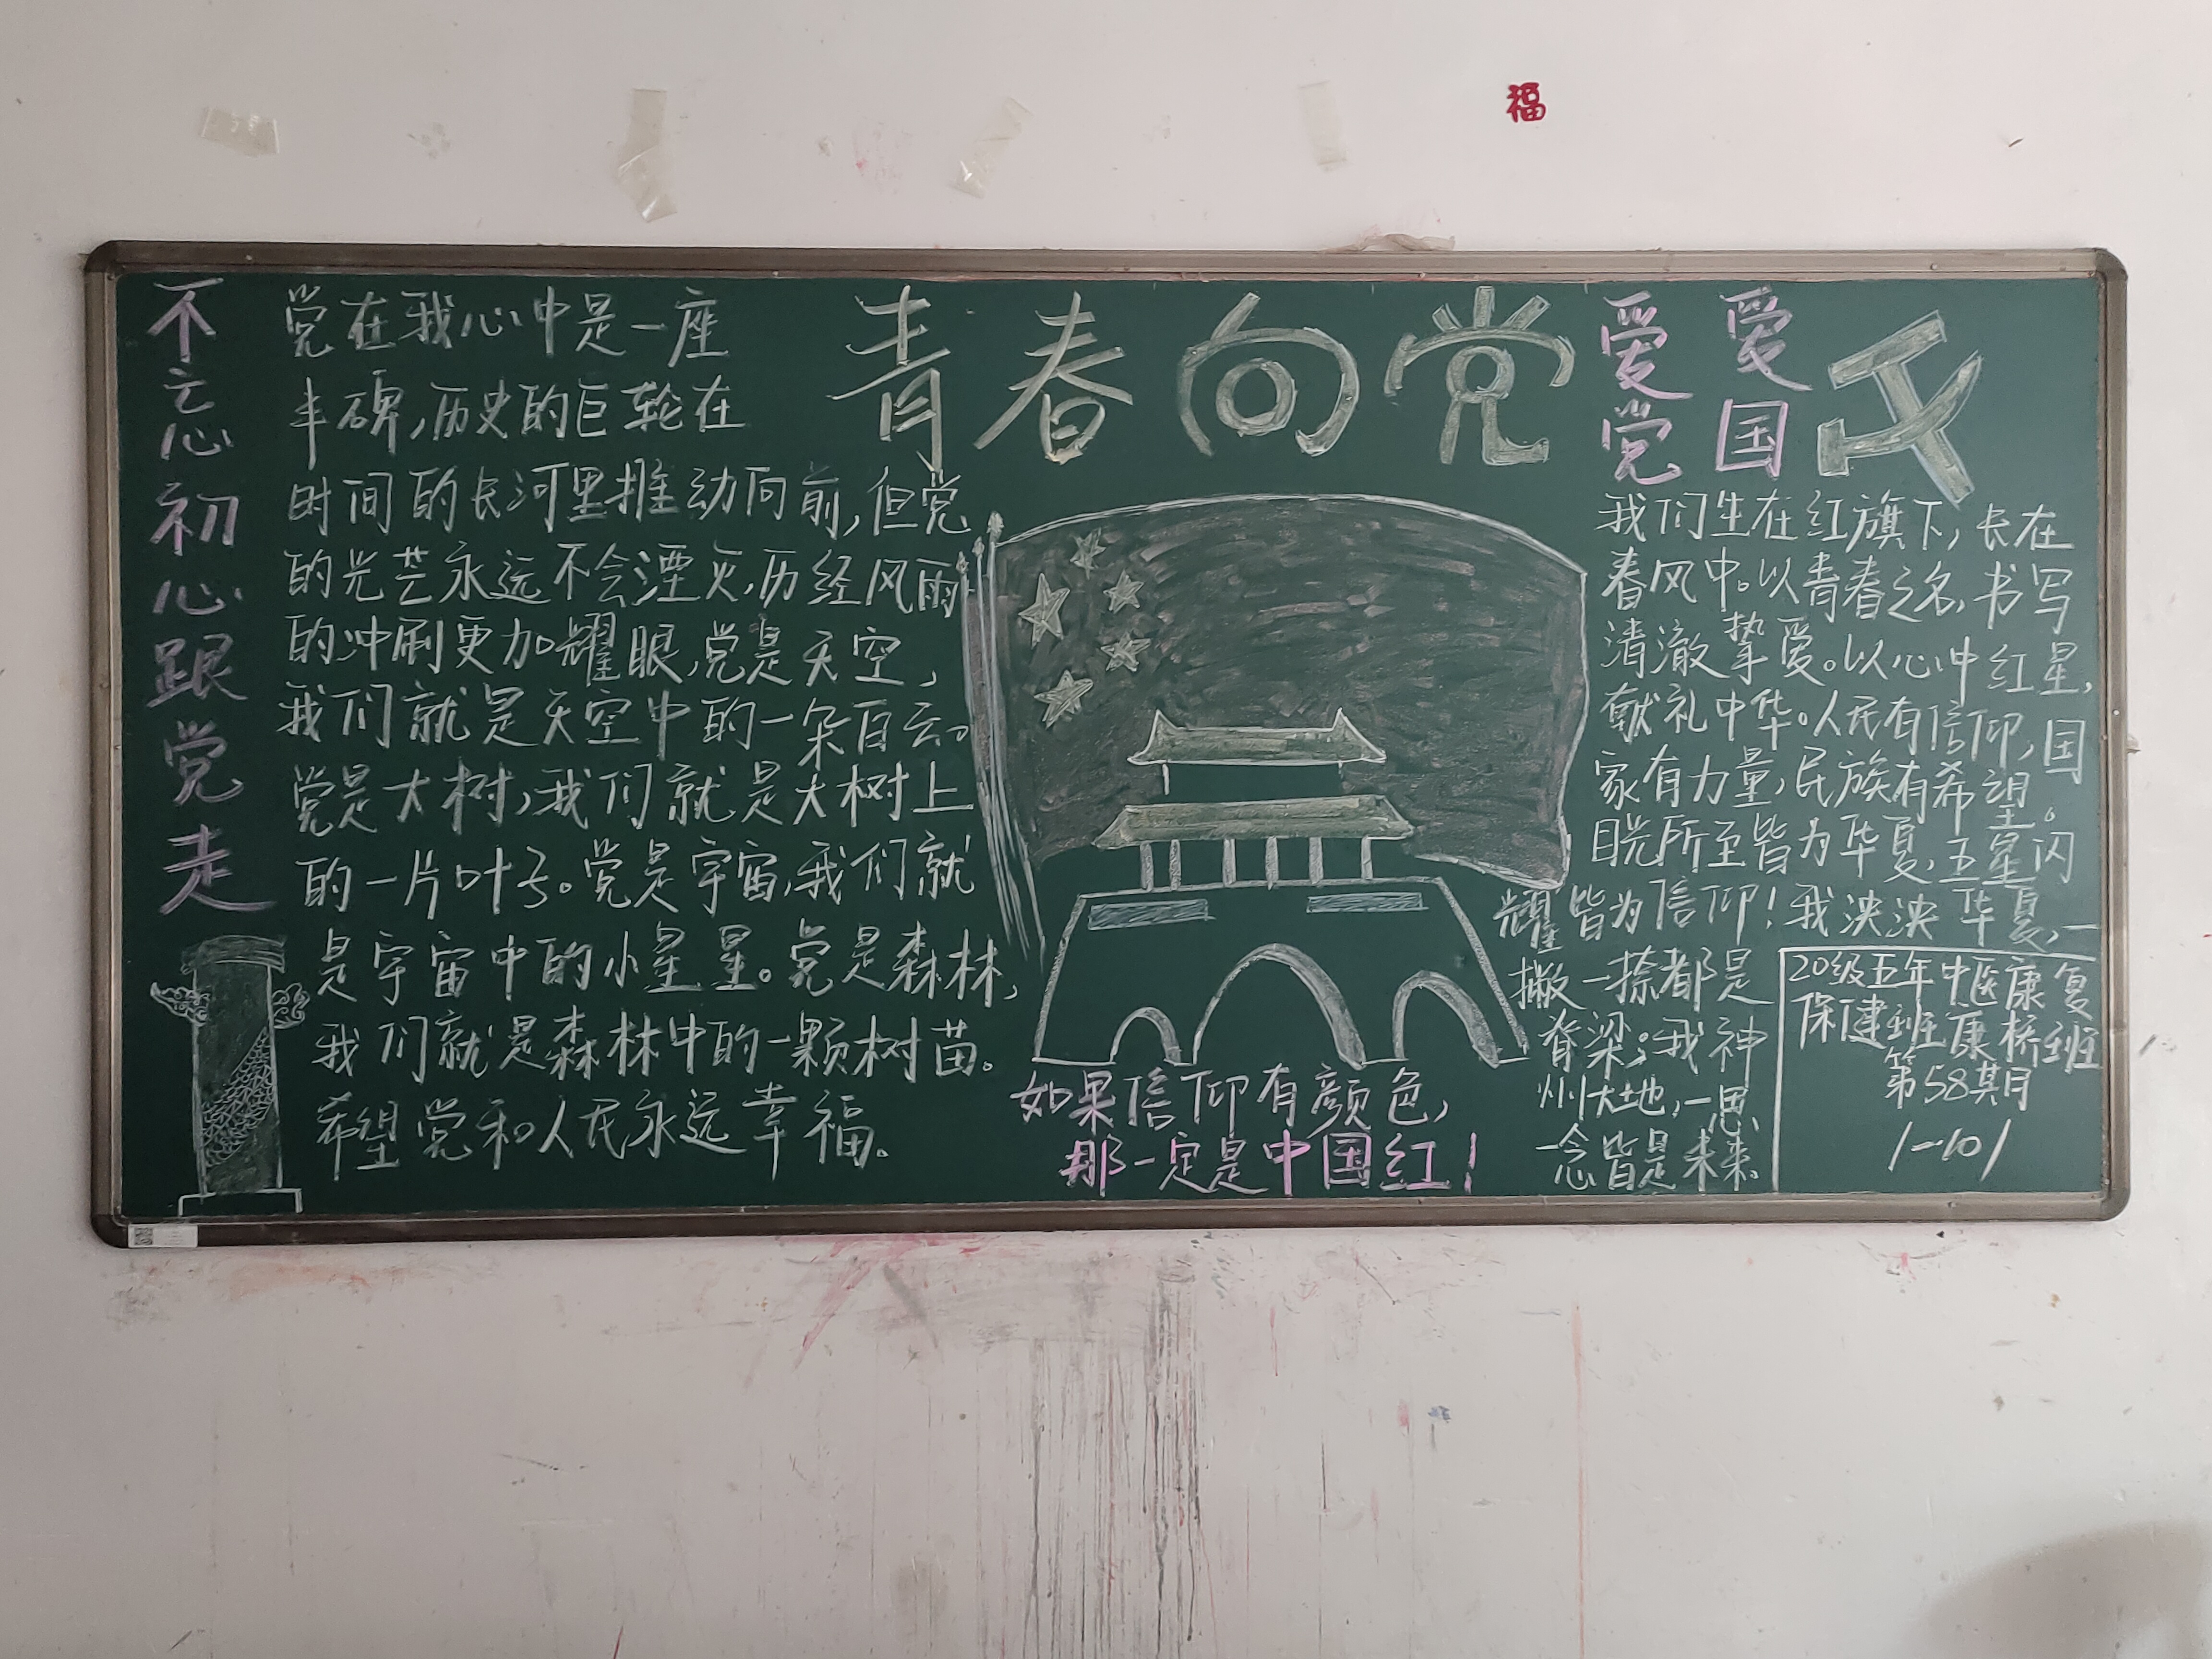 福
不忘初心跟党走
党在我心中是一座
丰碑,历史的巨轮在
时间的长河里推动向前,但党
的光芒永远不会湮灭,历经风雨
的冲刷更加耀眼,党是天空,
我们就是天空中的一朵白云。
党是大树,我们就是大树上
的一片叶子。党是宇宙,我们就
是宇宙中的小星星。党是森林,
我们就是森林中的一颗树苗。
希望党和人民永远幸福。
青春向党
如果信仰有颜色,
那一定是中国红!
爱党
爱国
我们生在红旗下,长在
春风中。以青春之名,书写
清澈挚爱。以心中红星,
献礼中华。人民有信仰,国
家有力量,民族有希望。
目光所至皆为华夏,五星闪
耀皆为信仰!我泱泱华夏,一
撇一捺都是
脊梁;我神
州大地,一思
一念皆是未来。
20级五年中医康复
保健班康桥班
第58期
1-101